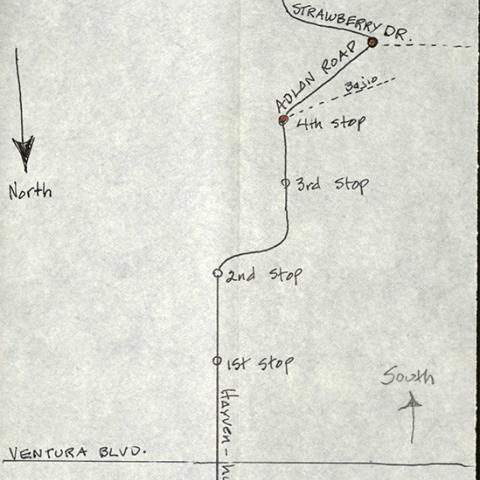 STRAWBERRY DR.
ADLON ROAD
Bajio
4th Stop
North
3rd Stop
2nd Stop
1st Stop
South
Hayven-h
VENTURA BLVD.